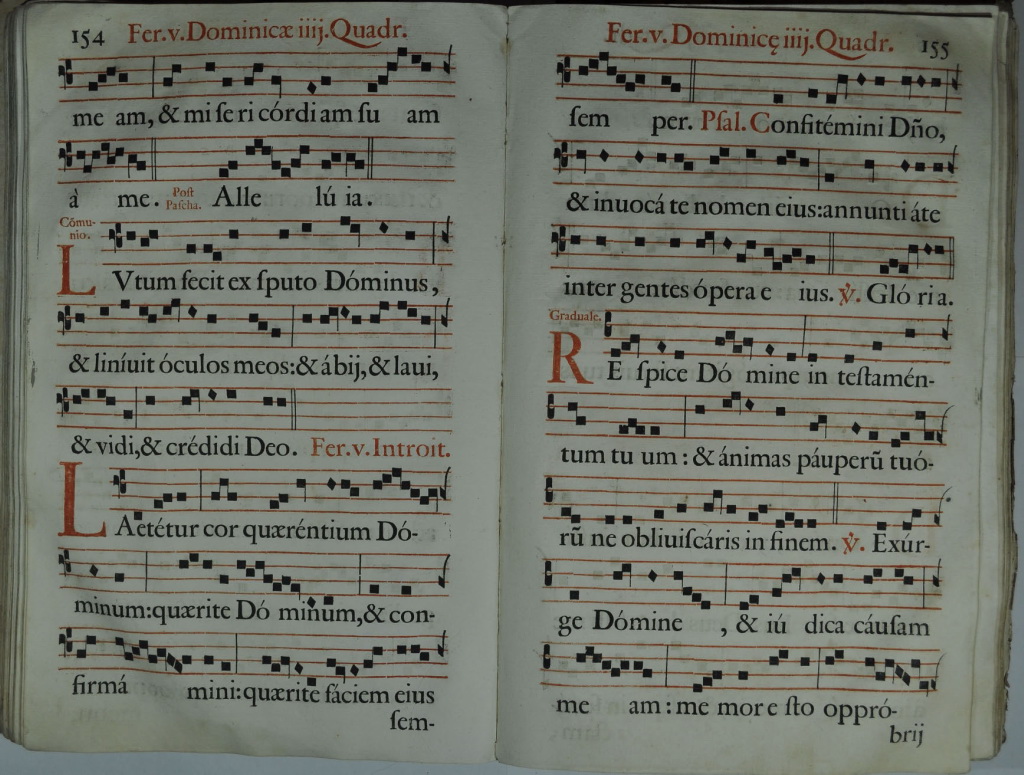 154 Fer.v.Dominicæ iiij.Quadr.
me am, & mi ſe ri córdi am ſu am
à me. Poſt Paſcha. Alle lú ia.
Cõmunio.
LVtum fecit ex ſputo Dóminus,
& liníuit óculos meos:& ábij,& laui,
& vidi,& crédidi Deo. Fer.v.Introit.
LAetétur cor quæréntium Dó-
minum:quærite Dó minum,& con-
firmá mini:quærite fáciem eius
ſem-
Fer.v.Dominicę iiij.Quadr. 155
ſem per. Pſal. Confitémini Dño,
& inuocá te nomen eius:annunti áte
inter gentes ópera e ius. ℣. Gló ri a.
Graduale.
RE ſpice Dó mine in teſtamén-
tum tu um : & ánimas páuperũ tuó-
rũ ne obliuiſcáris in finem. ℣. Exúr-
ge Dómine , & iú dica cáuſam
me am : me mor e ſto oppró-
brij